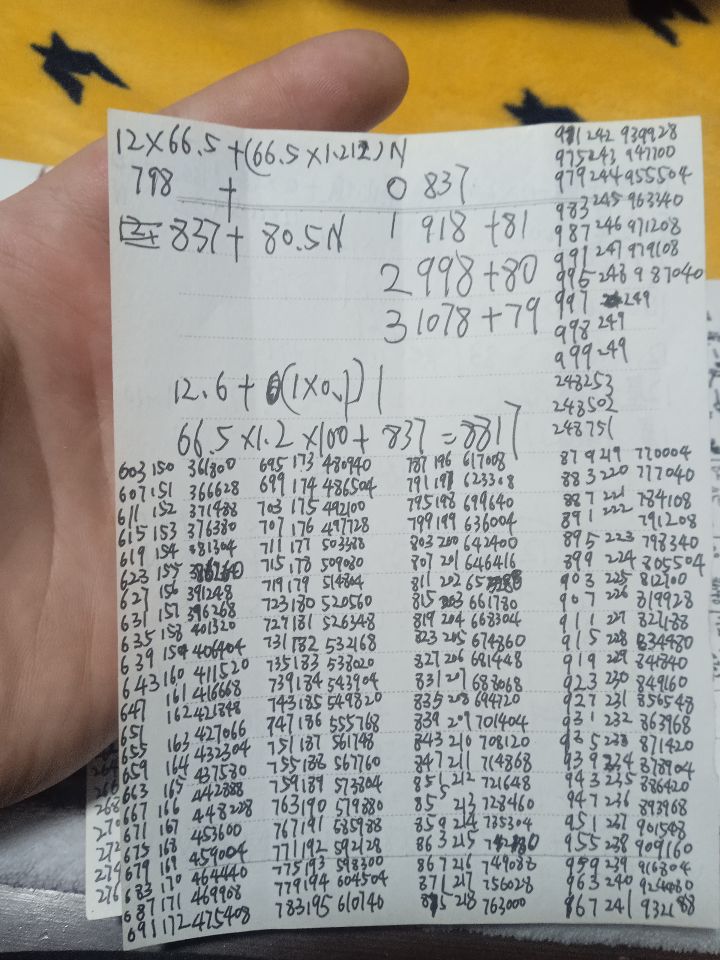 12×66.5+(66.5×1.212)N
798 +
837+ 80.5N
0 837
1 918 +81
2 998+80
3 1078+79
12.6+ (1×0.1)1
66.5×1.2×100+ 837 =8817
971 242 939928
975 243 947700
979 244 955504
983 245 963340
987 246 971208
991 247 979108
995 248 987040
997 249
998 249
999 249
248253
248502
248751
603 150 361800
607 151 366628
611 152 371488
615 153 376380
619 154 381304
623 155
627 156 391248
631 157 396268
635 158 401320
639 159 406404
643 160 411520
647 161 416668
651 162 421848
655 163 427066
659 164 432304
663 165 437580
667 166 442888
671 167 448228
675 168 453600
679 169 459004
683 170 464440
687 171 469908
691 172 475408
695 173 480940
699 174 486504
703 175 492100
707 176 497728
711 177 503388
715 178 509080
719 179 514804
723 180 520560
727 181 526348
731 182 532168
735 183 538020
739 184 543904
743 185 549820
747 186 555768
751 187 561748
755 188 567760
759 189 573804
763 190 579880
767 191 585988
771 192 592128
775 193 598300
779 194 604504
783 195 610740
787 196 617008
791 197 623308
795 198 699640
799 199 636004
803 200 642400
807 201 646416
811 202
815 203 661780
819 204 668304
823 205 674860
827 206 681448
831 207 688068
835 208 694720
839 209 701404
843 210 708120
847 211 714868
851 212 721648
85 213 728460
859 214 735304
863 215
867 216 749088
871 217 756028
875 218 763000
879 219 770004
883 220 777040
887 221 784108
891 222 791208
895 223 798340
899 224 805504
903 225 812700
907 226 819928
911 227 827188
915 228 834480
919 229 841840
923 230 849160
927 231 856548
931 232 863968
935 233 871420
939 234 878904
943 235 886420
947 236 893968
951 237 901548
955 238 909160
959 239 916804
963 240 924480
967 241 932188